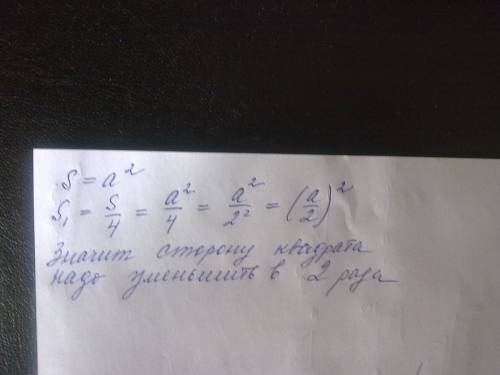 S = a²
S₁ = S/4 = a²/4 = a²/2² = (a/2)²
Значит сторону квадрата
надо уменьшить в 2 раза